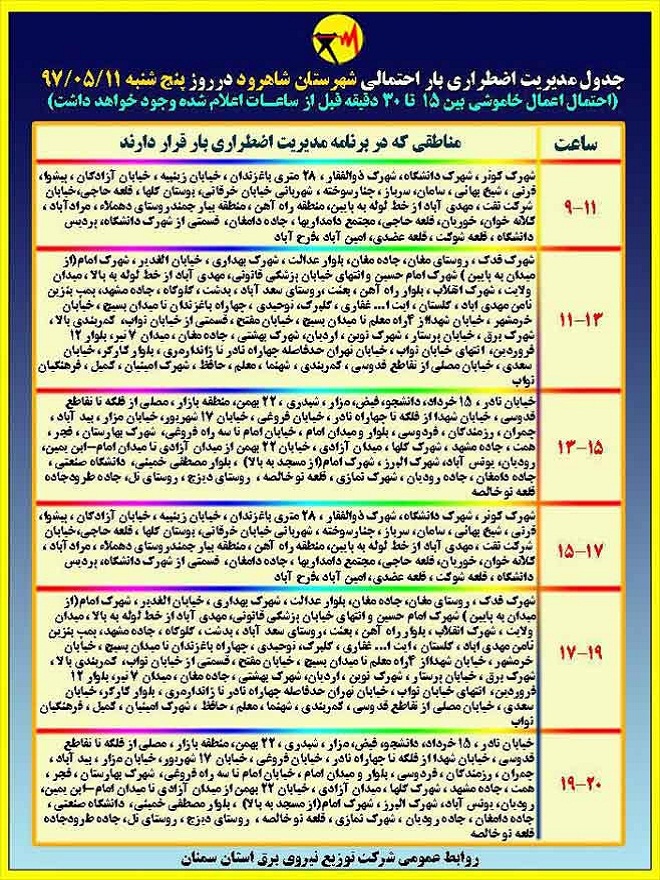 جدول مدیریت اضطراری بار احتمالی شهرستان شاهرود در روز پنج شنبه ۹۷/۰۵/۱۱
(احتمال اعمال خاموشی بین ۱۵ تا ۳۰ دقیقه قبل از ساعات اعلام شده وجود خواهد داشت)
ساعت
مناطقی که در برنامه مدیریت اضطراری بار قرار دارند
۹-۱۱
شهرک کوثر، شهرک دانشگاه، شهرک ذوالفقار، ۲۸ متری باغزندان، خیابان زینبیه، خیابان آزادگان، پیشوا،
شیخ بهائی، سامان، سرباز، چنارسوخته، شهربانی خیابان خرقانی، بوستان گلها، قلعه حاجی،خیابان
شرکت نفت، مهدی آباد از خط لوله به پایین، منطقه راه آهن، منطقه بیار جمندروستای دهملاء، مرادآباد،
کلاته خوان، خوریان، قلعه حاجی، مجتمع دامداریها، جاده دامغان، قسمتی از شهرک دانشگاه، پردیس
دانشگاه، قلعه شوکت، قلعه عضدی، امین آباد، فرح آباد
۱۱-۱۳
شهرک فدک، روستای مغان، جاده مغان، بلوار عدالت، شهرک بهداری، خیابان الغدیر، شهرک امام(از
میدان به پایین) شهرک امام حسین و انتهای خیابان پزشکی قانونی، مهدی آباد از خط لوله به بالا، میدان
ولایت، شهرک انقلاب، بلوار راه آهن، بعثت، روستای سعد آباد، بدشت، گلوگاه، جاده مشهد، پمپ بنزین
ثامن مهدی آباد، گلستان، آیت ا... غفاری، گلبرگ، توحیدی، چهاراه باغزندان تا میدان بسیج، خیابان
خرمشهر، خیابان شهدااز ۴راه معلم تا میدان بسیج، خیابان مفتح، قسمتی از خیابان نواب، کمربندی بالا،
شهرک برق، خیابان پرستار، شهرک نوین، اردیان، شهرک بهشتی، جاده مغان، میدان ۷ تیر، بلوار ۱۲
فروردین، انتهای خیابان نواب، خیابان تهران حدفاصله چهاراه نادر تا ژاندارمری، بلوار کارگر، خیابان
سعدی، خیابان مصلی از تقاطع قدوسی، کمربندی، شهنما، معلم، حافظ، شهرک امینیان، کمیل، فرهنگیان
نواب
۱۳-۱۵
خیابان نادر، ۱۵ خرداد، دانشجو، فیض، مزار، شیدری، ۲۲ بهمن، منطقه بازار، مصلی از فلکه تا تقاطع
قدوسی، خیابان شهدا از فلکه تا چهاراه نادر، خیابان فروغی، خیابان ۱۷ شهریور، خیابان مزار، بید آباد،
چمران، رزمندگان، فردوسی، بلوار و میدان امام، خیابان امام تا سه راه فروغی، شهرک بهارستان، فجر،
همت، جاده مشهد، شهرک گلها، میدان آزادی، خیابان ۲۲ بهمن از میدان آزادی تا میدان امام-ابن یمین،
رودیان، یونس آباد، شهرک البرز، شهرک امام(از مسجد به بالا)، بلوار مصطفی خمینی، دانشگاه صنعتی،
جاده دامغان، جاده رودیان، شهرک نمازی، قلعه نو خالصه، روستای دیزج، روستای تل، جاده طرودجاده
قلعه نو خالصه
۱۵-۱۷
شهرک کوثر، شهرک دانشگاه، شهرک ذوالفقار، ۲۸ متری باغزندان، خیابان زینبیه، خیابان آزادگان، پیشوا،
شیخ بهائی، سامان، سرباز، چنارسوخته، شهربانی خیابان خرقانی، بوستان گلها، قلعه حاجی،خیابان
شرکت نفت، مهدی آباد از خط لوله به پایین، منطقه راه آهن، منطقه بیار جمندروستای دهملاء، مرادآباد،
کلاته خوان، خوریان، قلعه حاجی، مجتمع دامداریها، جاده دامغان، قسمتی از شهرک دانشگاه، پردیس
دانشگاه، قلعه شوکت، قلعه عضدی، امین آباد، فرح آباد
۱۷-۱۹
شهرک فدک، روستای مغان، جاده مغان، بلوار عدالت، شهرک بهداری، خیابان الغدیر، شهرک امام(از
میدان به پایین) شهرک امام حسین و انتهای خیابان پزشکی قانونی، مهدی آباد از خط لوله به بالا، میدان
ولایت، شهرک انقلاب، بلوار راه آهن، بعثت، روستای سعد آباد، بدشت، گلوگاه، جاده مشهد، پمپ بنزین
ثامن مهدی آباد، گلستان، آیت ا... غفاری، گلبرگ، توحیدی، چهاراه باغزندان تا میدان بسیج، خیابان
خرمشهر، خیابان شهدااز ۴راه معلم تا میدان بسیج، خیابان مفتح، قسمتی از خیابان نواب، کمربندی بالا،
شهرک برق، خیابان پرستار، شهرک نوین، اردیان، شهرک بهشتی، جاده مغان، میدان ۷ تیر، بلوار ۱۲
فروردین، انتهای خیابان نواب، خیابان تهران حدفاصله چهاراه نادر تا ژاندارمری، بلوار کارگر، خیابان
سعدی، خیابان مصلی از تقاطع قدوسی، کمربندی، شهنما، معلم، حافظ، شهرک امینیان، کمیل، فرهنگیان
نواب
۱۹-۲۰
خیابان نادر، ۱۵ خرداد، دانشجو، فیض، مزار، شیدری، ۲۲ بهمن، منطقه بازار، مصلی از فلکه تا تقاطع
قدوسی، خیابان شهدا از فلکه تا چهاراه نادر، خیابان فروغی، خیابان ۱۷ شهریور، خیابان مزار، بید آباد،
چمران، رزمندگان، فردوسی، بلوار و میدان امام، خیابان امام تا سه راه فروغی، شهرک بهارستان، فجر،
همت، جاده مشهد، شهرک گلها، میدان آزادی، خیابان ۲۲ بهمن از میدان آزادی تا میدان امام-ابن یمین،
رودیان، یونس آباد، شهرک البرز، شهرک امام(از مسجد به بالا)، بلوار مصطفی خمینی، دانشگاه صنعتی،
جاده دامغان، جاده رودیان، شهرک نمازی، قلعه نو خالصه، روستای دیزج، روستای تل، جاده طرودجاده
قلعه نو خالصه
روابط عمومی شرکت توزیع نیروی برق استان سمنان